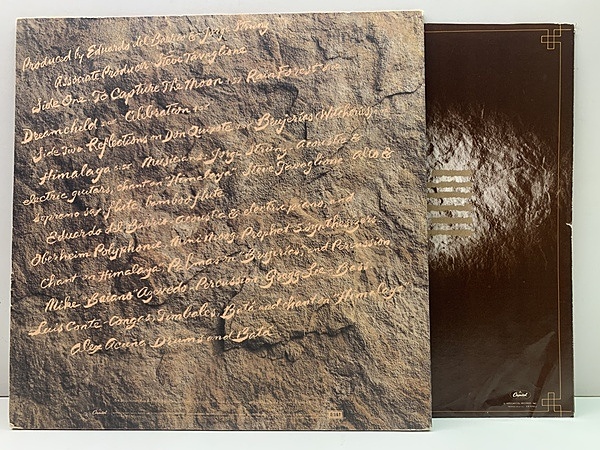 Produced by Eduardo del Barrio & Jorge Strunz
Associate Producer Steve Tavaglione
Side One To Capture The Moon Rain Forest
Dreamchild Celebration
Side Two Reflections on Don Quixote Brujerias (Witcheries)
Himalaya Musicians: Jorge Strunz - Acoustic &
electric guitars, chant on Himalaya Steve Tavaglione - Alto &
soprano sax, flute, bamboo flute
Eduardo del Barrio acoustic & electric piano, and
Oberheim Polyphonic, Mini Moog, Prophet 5 synthesizers
chant on Himalaya, on Brujerias, and Percussion
Mike "Baiano" Azevedo - Percussion Gregg Lee - Bass
Luis Conte - Congas, Timbales, Bata and chant on Himalaya
Alex Acuña Drums and Bata
Capitol
Capitol